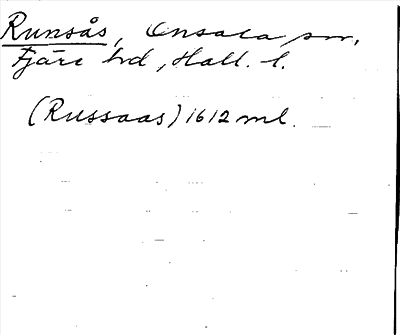 Runsås, Onsala sn,
Fjäre hd, Hall. l.
(Russaas) 1612 ml.